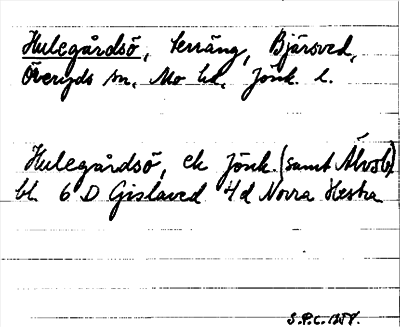 Hulegårdsö, terräng, Bjärsved,
Överyds sn, Mo hd, Jönk. l.
Hulegårdsö, ek Jönk. (samt Älvsb)
bl. 6 D Gislaved 4d Norra Hestra
S.P.C.